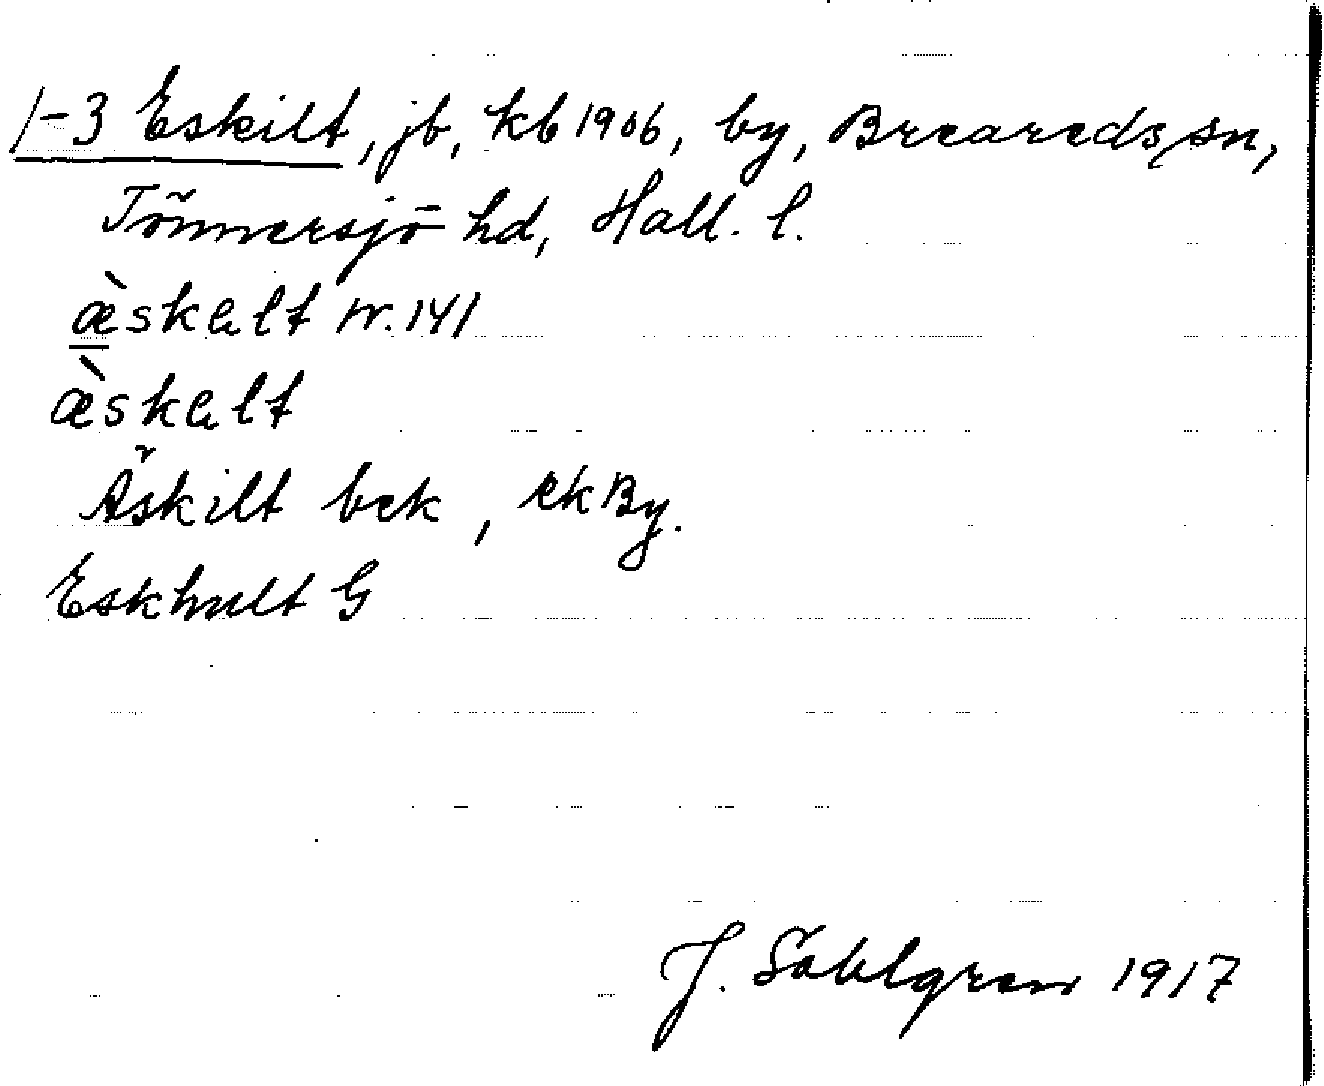 1-3 Eskilt, jb, kb 1906, by, Breareds sn,
Tönnersjö hd, Hall. l.
æ̀skalt nr. 141
æ̀skalt
Äskilt bek, ekBy.
Eskhult G
J. Sahlgren 1917